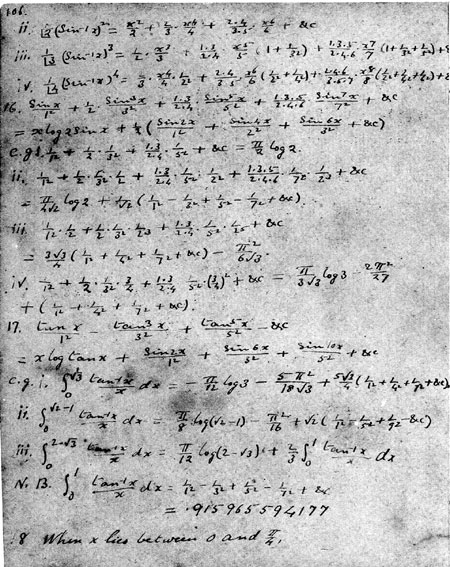 106.
ii. 1/⌊2 (Sin⁻¹x)² = x²/2 + 2/3 · x⁴/4 + 2·4/3·5 · x⁶/6 + &c
iii. 1/⌊3 (Sin⁻¹x)³ = 1/2 · x³/3 + 1·3/2·4 · x⁵/5 (1 + 1/3²) + 1·3·5/2·4·6 · x⁷/7 (1 + 1/3² + 1/5²) + &
iv. 1/⌊4 (Sin⁻¹x)⁴ = 2/3 · x⁴/4 · 1/2² + 2·4/3·5 · x⁶/6 (1/2² + 1/4²) + 2·4·6/3·5·7 · x⁸/8 (1/2² + 1/4² + 1/6²) + &
16. Sin x/1² + 1/2 · Sin³x/3² + 1·3/2·4 · Sin⁵x/5² + 1·3·5/2·4·6 · Sin⁷x/7² + &c
= x log 2 Sin x + 1/2 ( Sin 2x/1² + Sin 4x/2² + Sin 6x/3² + &c)
e.g. i. 1/1² + 1/2 · 1/3² + 1·3/2·4 · 1/5² + &c = π/2 log 2.
ii. 1/1² + 1/2 · 1/3² · 1/2 + 1·3/2·4 · 1/5² · 1/2² + 1·3·5/2·4·6 · 1/7² · 1/2³ + &c
= π/4√2 log 2 + 1/√2 ( 1/1² − 1/3² + 1/5² − 1/7² + &c)
iii. 1/1² · 1/2 + 1/2 · 1/3² · 1/2³ + 1·3/2·4 · 1/5² · 1/2⁵ + &c
= 3√3/4 ( 1/1² + 1/4² + 1/7² + &c) − π²/6√3.
iv. 1/1² + 1/2 · 1/3² · 3/4 + 1·3/2·4 · 1/5² (3/4)² + &c = π/3√3 log 3 − 2π²/27
+ ( 1/1² + 1/4² + 1/7² + &c).
17. tan x/1² − tan³x/3² + tan⁵x/5² − &c
= x log tan x + Sin 2x/1² + Sin 6x/3² + Sin 10x/5² + &c
e.g. i. ∫₀^√3 tan⁻¹x/x dx = − π/12 log 3 − 5π²/18√3 + 5√3/4 ( 1/1² + 1/4² + 1/7² + &c)
ii. ∫₀^√2−1 tan⁻¹x/x dx = π/8 log(√2−1) − π²/16 + √2 ( 1/1² − 1/5² + 1/9² − &c)
iii. ∫₀^2−√3 tan⁻¹x/x dx = π/12 log(2−√3) + 2/3 ∫₀¹ tan⁻¹x/x dx
N.B. ∫₀¹ tan⁻¹x/x dx = 1/1² − 1/3² + 1/5² − 1/7² + &c
= .915965594177
18 When x lies between 0 and π/4,